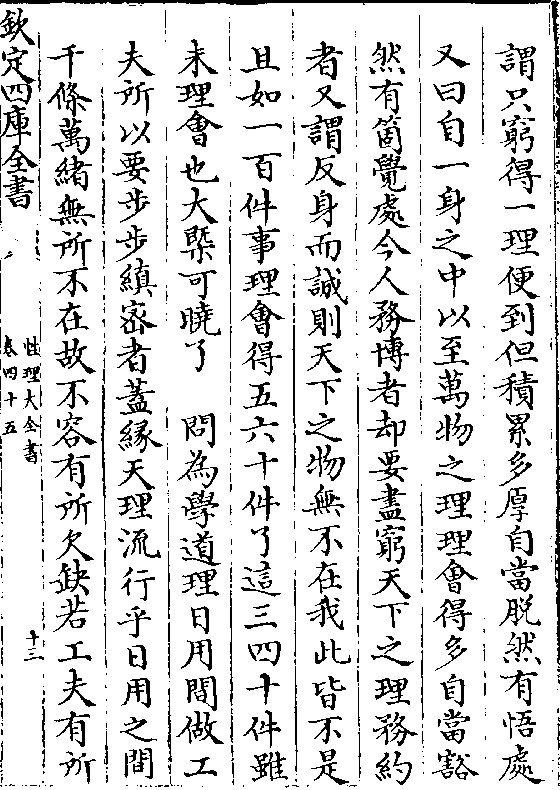 謂只窮得一理便到但積累多厚自當脱然有悟處
又曰自一身之中以至萬物之理理會得多自當豁
然有箇覺處今人務博者却要盡窮天下之理務約
者又謂反身而誠則天下之物無不在我此皆不是
且如一百件事理會得五六十件了這三四十件雖
未理會也大槩可曉了　問為學道理日用間做工
夫所以要步步縝宻者蓋緣天理流行乎日用之間
千條萬緒無所不在故不容有所欠缺若工夫有所
欽定四庫全書
性理大全書
卷四十五
十三